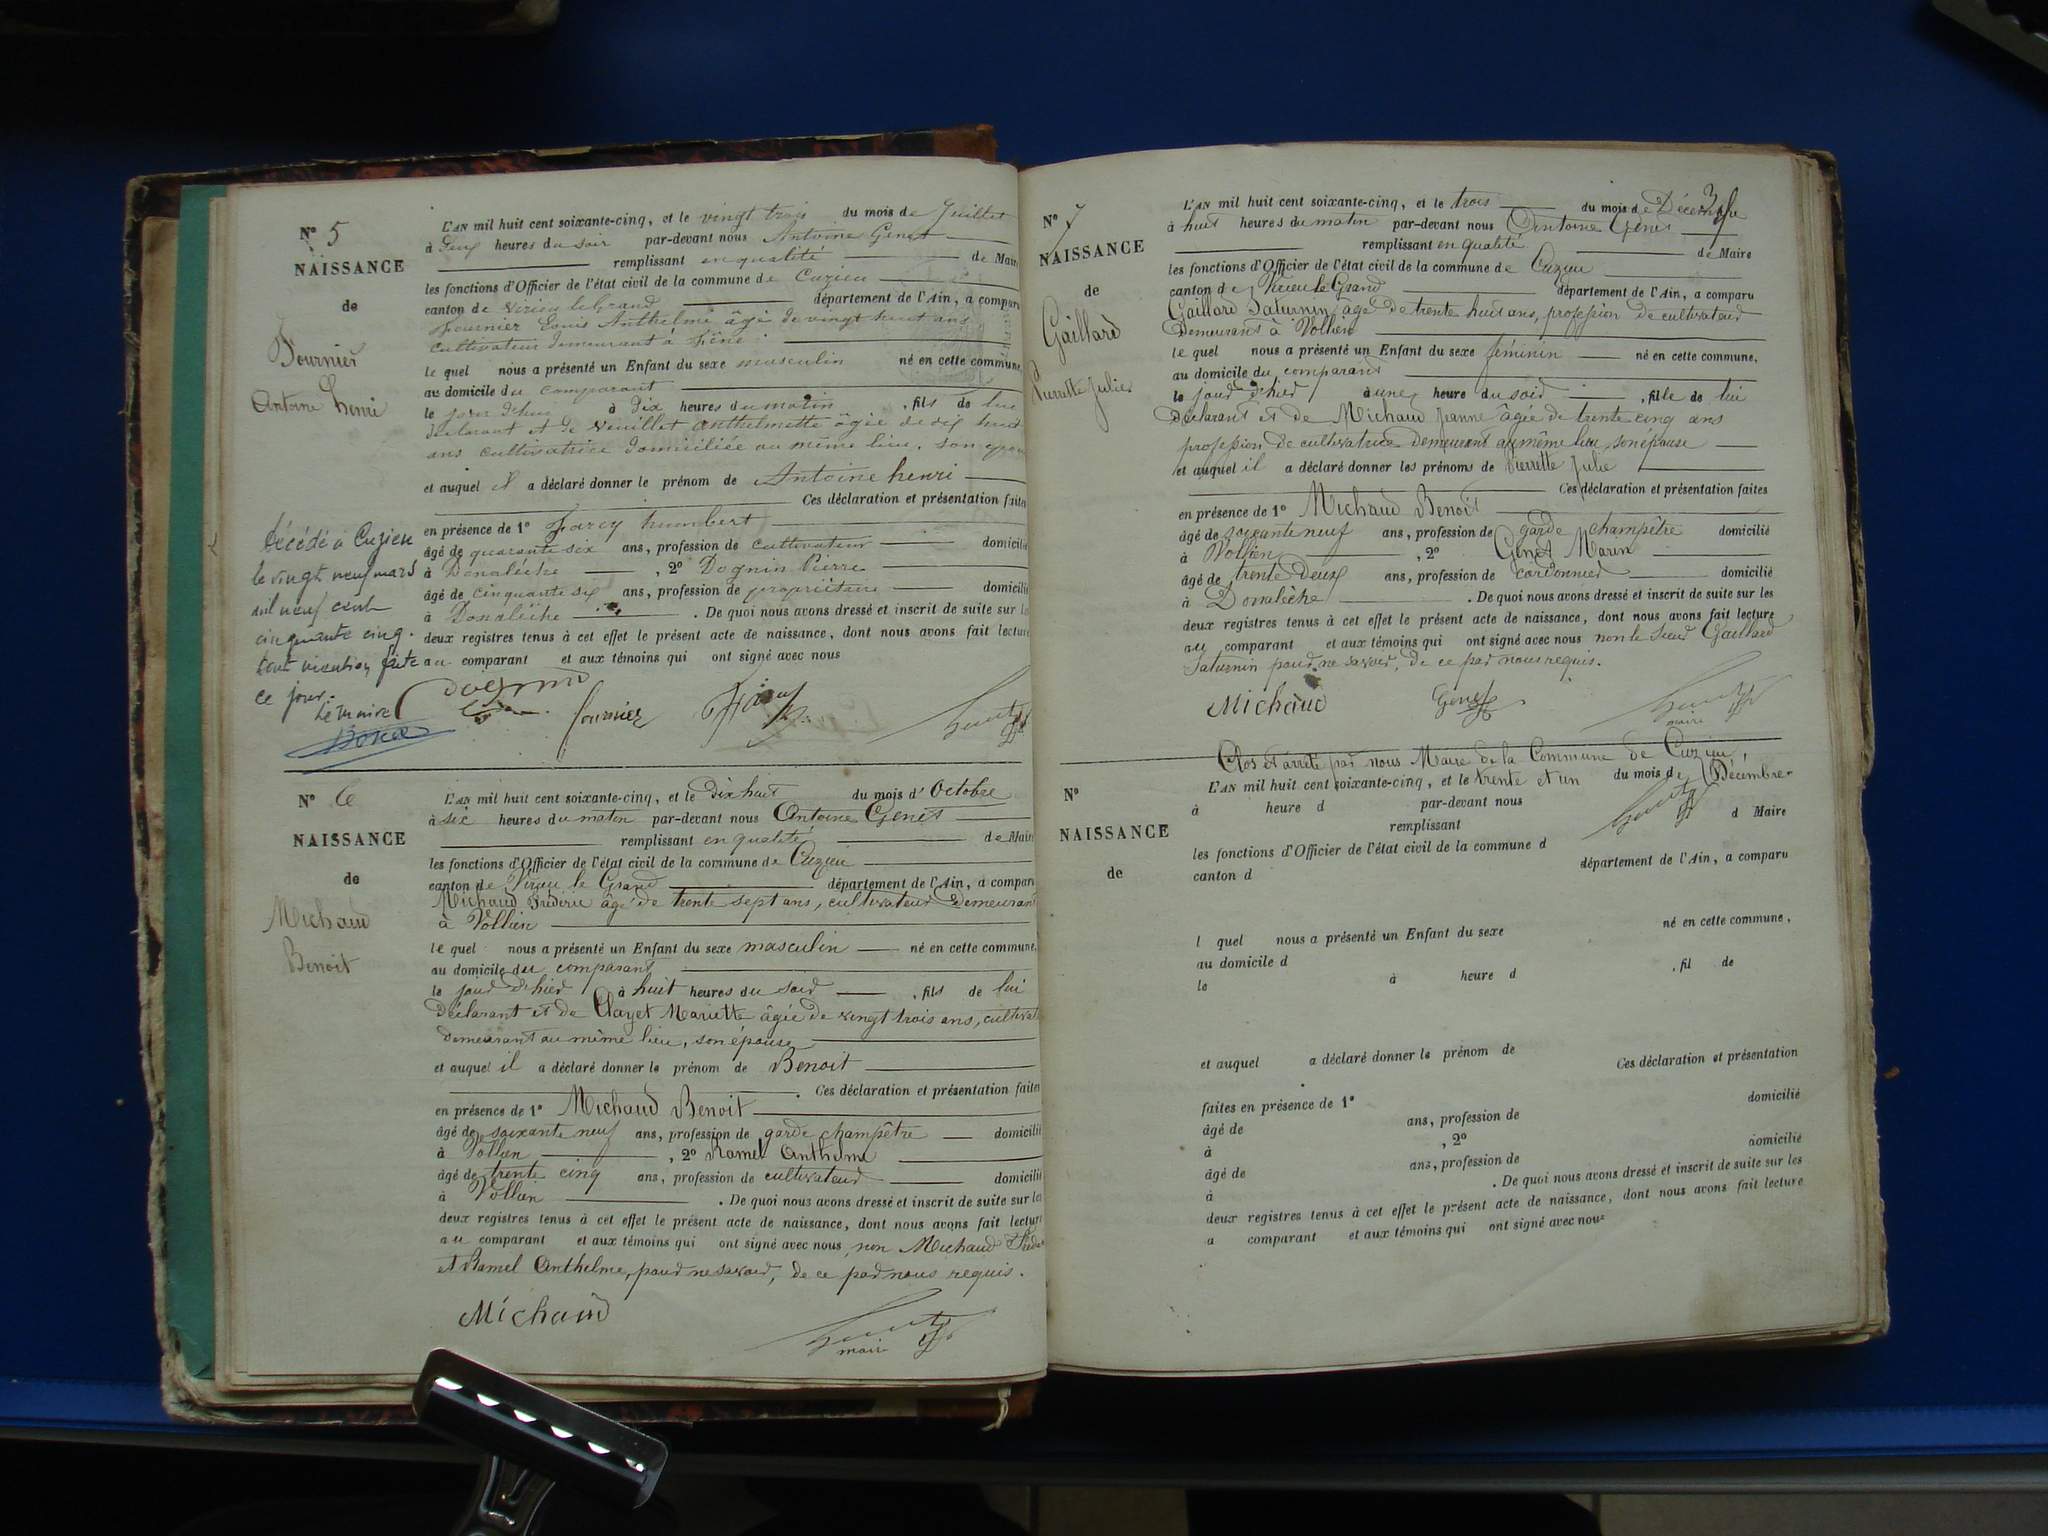 N° 5
NAISSANCE
de
Fournier
Antoine Henri
L'AN mil huit cent soixante-cinq, et le vingt trois du mois de Juillet
à deux heures du soir par-devant nous Antoine Genet
remplissant en qualité de Maire
les fonctions d'Officier de l'état civil de la commune de Cuzieu
canton de Virieu le Grand département de l'Ain, a comparu
Fournier Louis Anthelme âgé de vingt huit ans
cultivateur demeurant à
le quel nous a présenté un Enfant du sexe masculin né en cette commune,
au domicile du comparant
le jour d'hui à dix heures du matin, fils de lui
déclarant et de Veuillet Anthelmette âgée de dix huit
ans cultivatrice domiciliée au même lieu, son
et auquel il a déclaré donner le prénom de Antoine henri
Ces déclaration et présentation faites
en présence de 1° Farcy humbert
âgé de quarante six ans, profession de cultivateur domicilié
à Donalèche, 2° Dognin Pierre
âgé de cinquante six ans, profession de propriétaire domicilié
à Donalèche. De quoi nous avons dressé et inscrit de suite sur les
deux registres tenus à cet effet le présent acte de naissance, dont nous avons fait lecture
au comparant et aux témoins qui ont signé avec nous
Décédé à Cuzieu
le vingt neuf mars
mil neuf cent
cinquante cinq.
dont mention faite
ce jour.
Le maire
dognin fournier
N° 6
NAISSANCE
de
Michaud
Benoit
L'AN mil huit cent soixante-cinq, et le Dix huit du mois d'Octobre
à six heures du matin par-devant nous Antoine Genet
remplissant en qualité de Maire
les fonctions d'Officier de l'état civil de la commune de Cuzieu
canton de Virieu le Grand département de l'Ain, a comparu
Michaud Fréderic âgé de trente sept ans, cultivateur Demeurant
à Vollien
le quel nous a présenté un Enfant du sexe masculin né en cette commune,
au domicile du comparant
le jour d'hier à huit heures du soir, fils de lui
Déclarant et de Clayet Mariette âgée de vingt trois ans,
Demeurant au même lieu, son épouse
et auquel il a déclaré donner le prénom de Benoit
. Ces déclaration et présentation faites
en présence de 1° Michaud Benoit
âgé de soixante neuf ans, profession de garde champêtre domicilié
à Vollien, 2° Ramel Anthelme
âgé de trente cinq ans, profession de cultivateur domicilié
à Vollien. De quoi nous avons dressé et inscrit de suite sur les
deux registres tenus à cet effet le présent acte de naissance, dont nous avons fait lecture
au comparant et aux témoins qui ont signé avec nous, non Michaud
et Ramel Anthelme, pour ne savoir, de ce par nous requis.
Michaud
maire
N° 7
NAISSANCE
de
Gaillard
Pierrette Julie
L'AN mil huit cent soixante-cinq, et le trois du mois de Décembre
à huit heures du matin par-devant nous Antoine Genet
remplissant en qualité de Maire
les fonctions d'Officier de l'état civil de la commune de Cuzieu
canton de Virieu le Grand département de l'Ain, a comparu
Gaillard Saturnin, âgé De trente huit ans, profession de cultivateur
Demeurant à Vollien
le quel nous a présenté un Enfant du sexe féminin né en cette commune,
au domicile du comparant
le jour d'hier à une heure du soir, fille de lui
Déclarant et de Michaud Jeanne âgée de trente cinq ans
profession de cultivatrice demeurant au même lieu, son épouse
et auquel il a déclaré donner les prénoms de Pierrette Julie
Ces déclaration et présentation faites
en présence de 1° Michaud Benoit
âgé de soixante neuf ans, profession de garde champêtre domicilié
à Vollien, 2° Genet Marin
âgé de trente Deux ans, profession de cordonnier domicilié
à Donalèche. De quoi nous avons dressé et inscrit de suite sur les
deux registres tenus à cet effet le présent acte de naissance, dont nous avons fait lecture
au comparant et aux témoins qui ont signé avec nous non le Sieur Gaillard
Saturnin pour ne savoir, de ce par nous requis.
Michaud Genet
maire
Clos et arrêté par nous Maire de la Commune de Cuzieu,
N°
NAISSANCE
de
L'AN mil huit cent soixante-cinq, et le trente et un du mois de Décembre.
à heure d par-devant nous
remplissant d Maire
les fonctions d'Officier de l'état civil de la commune d
canton d département de l'Ain, a comparu
l quel nous a présenté un Enfant du sexe né en cette commune,
au domicile d
le à heure d, fil de
et auquel a déclaré donner le prénom de
Ces déclaration et présentation
faites en présence de 1°
domicilié
âgé de ans, profession de
à, 2°
domicilié
âgé de ans, profession de
à. De quoi nous avons dressé et inscrit de suite sur les
deux registres tenus à cet effet le présent acte de naissance, dont nous avons fait lecture
a comparant et aux témoins qui ont signé avec nous